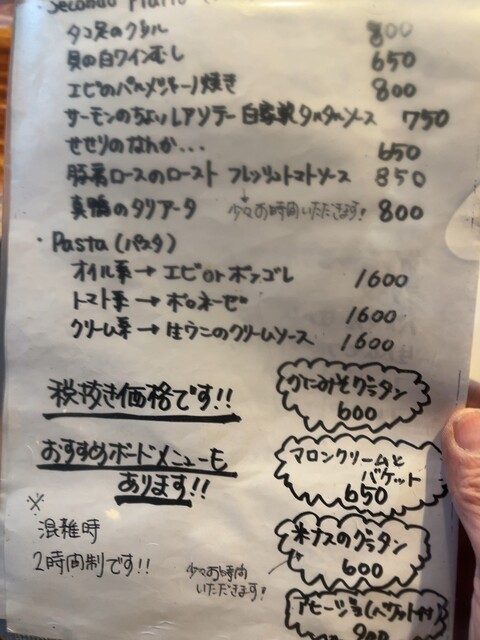 Secondo Piatto
タコ足のグリル 800
貝の白ワインむし 650
エビのパルメジャーノ焼き 800
サーモンのちょいレアソテー 自家製タルタルソース 750
せせりのなんか... 650
豚肩ロースのロースト フレッシュトマトソース 850
真鴨のタリアータ 少々お時間いただきます! 800
・Pasta (パスタ)
オイル系→エビorボンゴレ 1600
トマト系→ボロネーゼ 1600
クリーム系→生ウニのクリームソース 1600
税抜き価格です!!
おすすめボードメニューも
あります!!
※
混雑時
2時間制です!!
かにみそグラタン
600
マロンクリームと
バケット
650
米ナスのグラタン
600
少々お時間
いただきます!
アヒージョ(バゲット付)
900